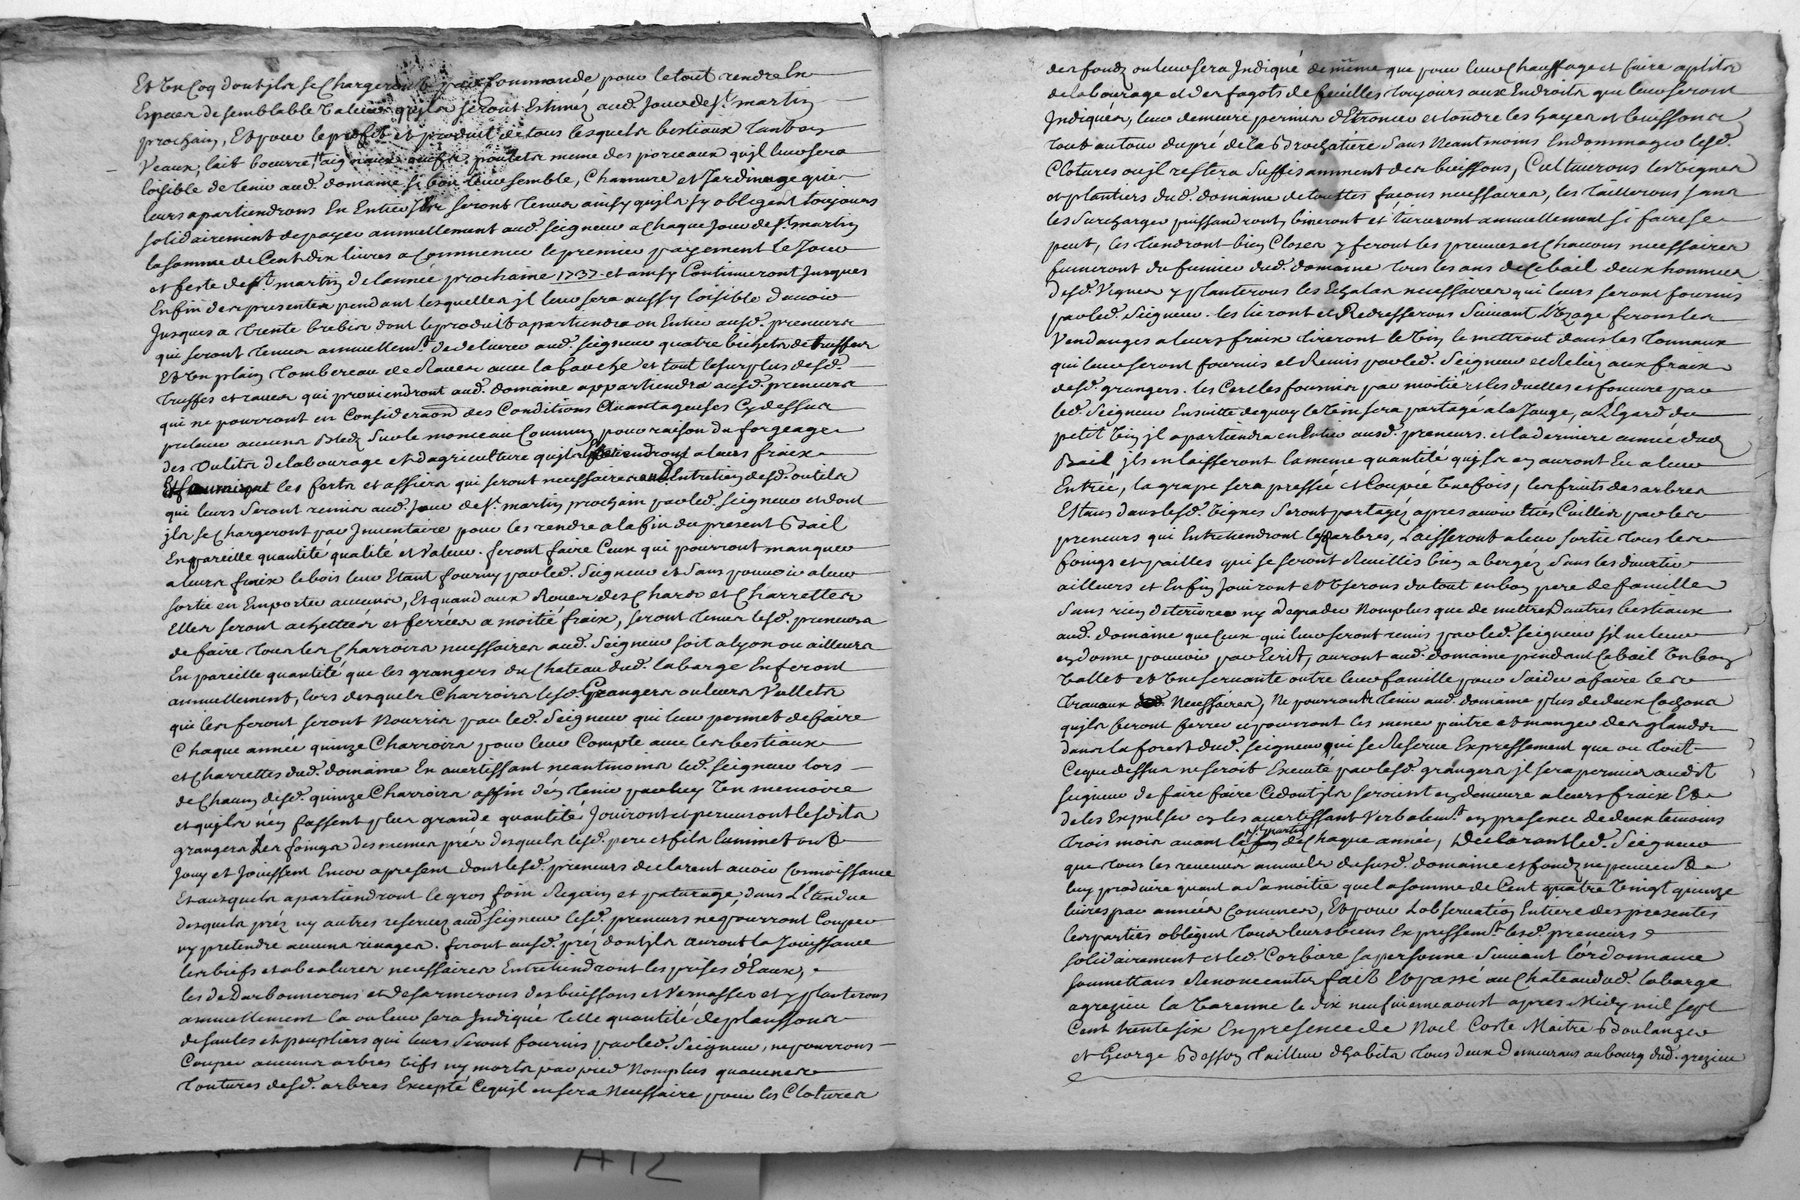 Et un Coq dont ils se Chargeront par Commande pour le tout rendre En
Espece de semblable Valeur qu'ils seront Estimés aud. Jour de St. martin
prochain, Et pour le profit et produit de tous lesquels bestiaux tant en
Veaux, lait beurre, poulets meme des porceaux qu'il leur sera
loisible de tenir aud. domaine si bon leur semble, Chanvre et Jardinage que
leurs apartiendrons En Entier Ils seront tenus ainsy qu'ils sy obligent toujours
solidairement de payer annuellement aud. seigneur a Chaque Jour de St. martin
la somme de Cent dix livres a commencer le premier payement Le Jour
et feste de St. martin de lannée prochaine 1737 et ainsy Continueront Jusques
En fin des presentes pendant lesquelles il leur sera aussy loisible davoir
Jusques a trente brebis dont le produit apartiendra en Entier ausd. preneurs
qui seront tenus annuellemt. de delivrer aud. seigneur quatre bichets de truffes
Et un plain tombereau de Raves avec la fauche et tout le surplus desd.
truffes et raves qui proviendront aud. domaine appartiendra ausd. preneurs
qui ne pourront en Consideraon des Conditions Avantageuses Cydessus
prelever aucuns Bleds sur le monceau Commun pour raison du forgeage
des Outils de labourage et dagriculture qu'ils entretiendront a leurs fraix
les forts et assiers qui seront necessaires Entretien desd. outils
qui leurs seront remis aud. Jour de St. martin prochain par led. seigneur et dont
ils se chargeront par Inventaire pour les rendre a la fin du present Bail
En pareille quantité qualité et Valeur. feront faire Ceux qui pourront manquer
a leurs fraix le bois leur Etant fourny par led. Seigneur et Sans pouvoir a leur
sortie en Emporter aucuns, Et quand aux Roues des Chars et Charrettes
Elles seront achettées et ferrées a moitié fraix, seront tenus lesd. preneurs
de faire tous les Charrois necessaires aud. Seigneur soit a lyon ou ailleurs
En pareille quantité que les grangers du Chateau dud. labarge En feront
annuellement, lors desquels Charrois lesd. Grangers ou leurs Vallets
qui les feront seront Nourris par led. Seigneur qui leur permet de faire
Chaque année quinze Charrois pour leur Compte avec les bestiaux
et Charrettes dud. domaine En avertissant neantmoins led. seigneur lors
de Chacun desd. quinze Charrois affin d'en tenir par luy Un memoire
et qu'ils n'en fassent plus grande quantité Jouiront et percevront lesdits
grangers Les foings des memes prés desquels lesd. pere et fils luminet ont
Jouy et Jouissent Encor apresent dont lesd. preneurs declarent avoir Connoissance
Et auxquels apartiendront le gros foin Regain et paturage, dans L'Etendue
desquels prés ny autres reservez aud. Seigneur lesd. preneurs ne pourront Couper
ny pretendre aucuns rivages. feront ausd. prés dont ils auront la Jouissance
les biefs et abealures necessaires Entretiendront les prises d'Eaux,
les deDarbonnerons et desarmerons des buissons et Vernasses et y planterons
annuellement la ou leur sera Indiqué Telle quantité de plansons
de saules et peupliers qui leurs seront fournis par led. Seigneur, ne pourrons
Couper aucuns arbres vifs ny morts par pied Nomplus qu'aucunes
tontures desd. arbres Excepté Cequil en sera Necessaire pour les Clotures
des fonds ou leur sera Indiqué de même que pour leur Chauffage et faire aplits
de labourage et des fagots de feuilles toujours aux Endroits qui leur seront
Indiqués, leur demeure permis d'Etroncer et tondre les hayes et buissons
tout autour du pré de la Brochatiere Sans Neantmoins Endommager lesd.
Clotures ou il restera suffisamment des buissons, Cultiverons les vignes
et plantiers dud. domaine de touttes facons necessaires, les taillerons sans
les surcharger bineront et tierceront annuellement si faire se
peut, les tiendront bien Closes y feront les preuves et Chavons necessaires
fumeront du fumier dud. domaine tous les ans de Cebail deux hommées
desd. Vignes y planterons les Echalas necessaires qui leurs seront fournis
par led. Seigneur. les lieront et Redresserons Suivant L'uzage feront les
Vendanges a leurs fraix tireront le Vin le mettront dans les Tonnaux
qui leur seront fournis et Remis par led. Seigneur et Reliez aux fraix
desd. grangers. les Cercles fournis par moitié et les duelles et fonсure par
led. Seigneur Ensuitte dequoy le Vin sera partagé a la Jauge, a L'Egard du
petit vin il apartiendra en Entier ausd. preneurs. et la derniere année dud.
Bail ils en laisseront la meme quantité qu'ils en auront Eu a leur
Entrée, la grape sera pressée et Coupée Une fois, les fruits des arbres
Estans dans lesd. Vignes Seront partagez apres avoir Etés Cuillis par les
preneurs qui Entretiendront lesd. arbres, Laisseront a leur sortie tous les
foings et pailles qui se seront Recuillis bien abergéz Sans les divertir
ailleurs et Enfin Jouiront et Userons du tout en bon pere de famille
Sans rien deteriorer ny degrader Nomplus que de mettre d'autres bestiaux
aud. domaine que Ceux qui leur seront remis par led. Seigneur s'il ne leur
en donne pouvoir par Ecrit, auront aud. domaine pendant Cebail Un bon
Vallet et Une servante outre leur famille pour S'aider a faire les
Travaux Necessaires, Ne pourront tenir aud. domaine plus de deux Cochons
qu'ils feront ferrer et pourront les mener paitre et manger des glands
dans la forest dud. seigneur qui se Reserve Expressement que ou tout
Ceque dessus ne seroit Executé par lesd. grangers il sera permis audit
seigneur de faire faire Ce dont ils seroient en demeure a leurs fraix Et
de les Expulser en les avertissant Verbalemt. en presence de deux temoins
trois mois avant la St. martin de Chaque année, Declarant led. Seigneur
que tous les revenus annuels desusd. domaine et fonds ne peuvent
luy produire quant a Sa moitié que la somme de Cent quatre Vingt quinze
livres par années Communes, Et pour L'observation Entiere des presentes
les parties obligent tous leurs biens Expressemt. lesd. preneurs
solidairement et led. Corbiere sa personne Suivant l'ordonnance
soumettans Renonceantes fait Et passé au Chateau dud. labarge
a grezieu la Varenne le dix neufvieme aoust apres Midy mil sept
Cent trente six En presence de Noel Coste Maitre Boulanger
et George Besson Tailleur d'habits tous deux Demeurans au bourg dud. grezieu
A12